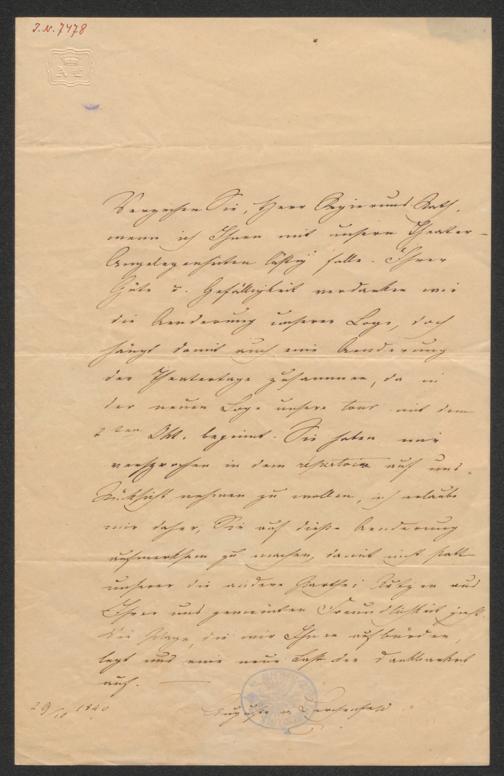 I.N. 7478
Vergeben Sie, Herr Regierungs Rath,
wenn ich Ihnen mit unsern Theater-
Angelegenheiten lästig falle. Ihrer
Güte u. Gefälligkeit verdanken wir
die Aenderung unserer Loge, doch
hängt damit auch eine Aenderung
der Theatertage zusammen, da in
der neuen Loge unsere tour mit dem
2ten Okt. beginnt. Sie haben mir
versprochen in dem repertoire auf uns
Rücksicht nehmen zu wollen, ich erlaube
mir daher, Sie auf diese Aenderung
aufmerksam zu machen, damit nicht statt
unserer die andere Parthei Nutzen aus
Ihrer uns gemeinten Freundlichkeit zieht.
Die Plage, die wir Ihnen aufbürden,
legt uns eine neue Last der Dankbarkeit
auf.
29/10 1840